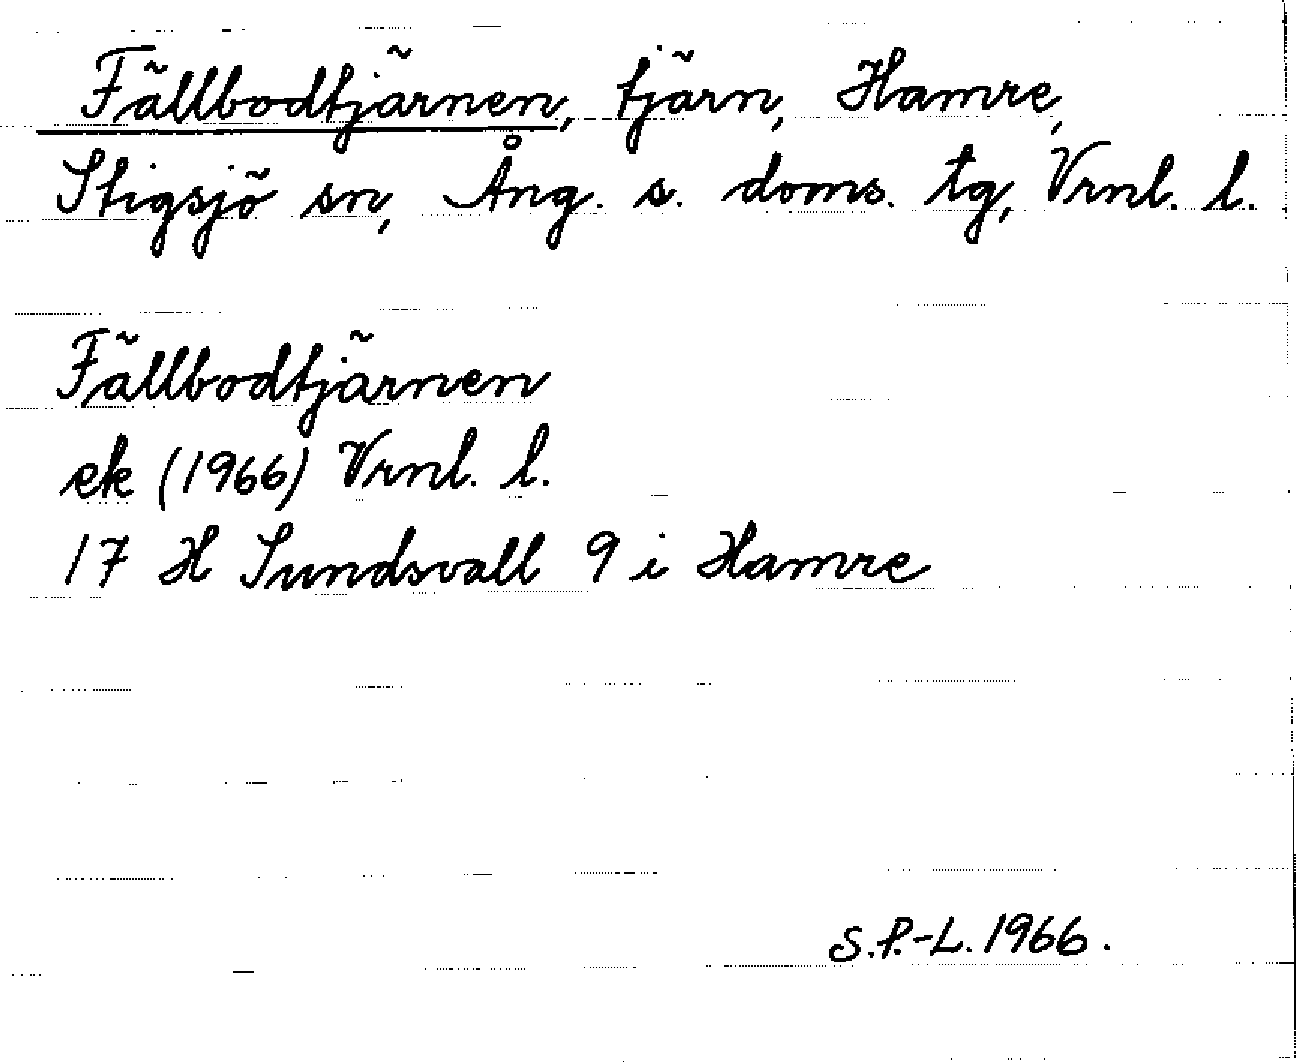 Fällbodtjärnen, tjärn, Hamre,
Stigsjö sn, Ång. s. doms. tg, Vrnl. l.
Fällbodtjärnen
ek (1966) Vrnl. l.
17 H Sundsvall 9 i Hamre
S.P.-L. 1966.